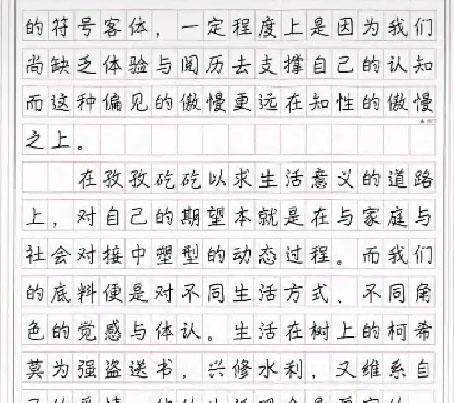 的符号客体，一定程度上是因为我们
尚缺乏体验与阅历去支撑自己的认知
而这种偏见的傲慢更远在知性的傲慢
之上。
在孜孜矻矻以求生活意义的道路
上，对自己的期望本就是在与家庭与
社会对接中塑型的动态过程。而我们
的底料便是对不同生活方式、不同角
色的觉感与体认。生活在树上的柯希
莫为强盗送书，兴修水利，又维系自